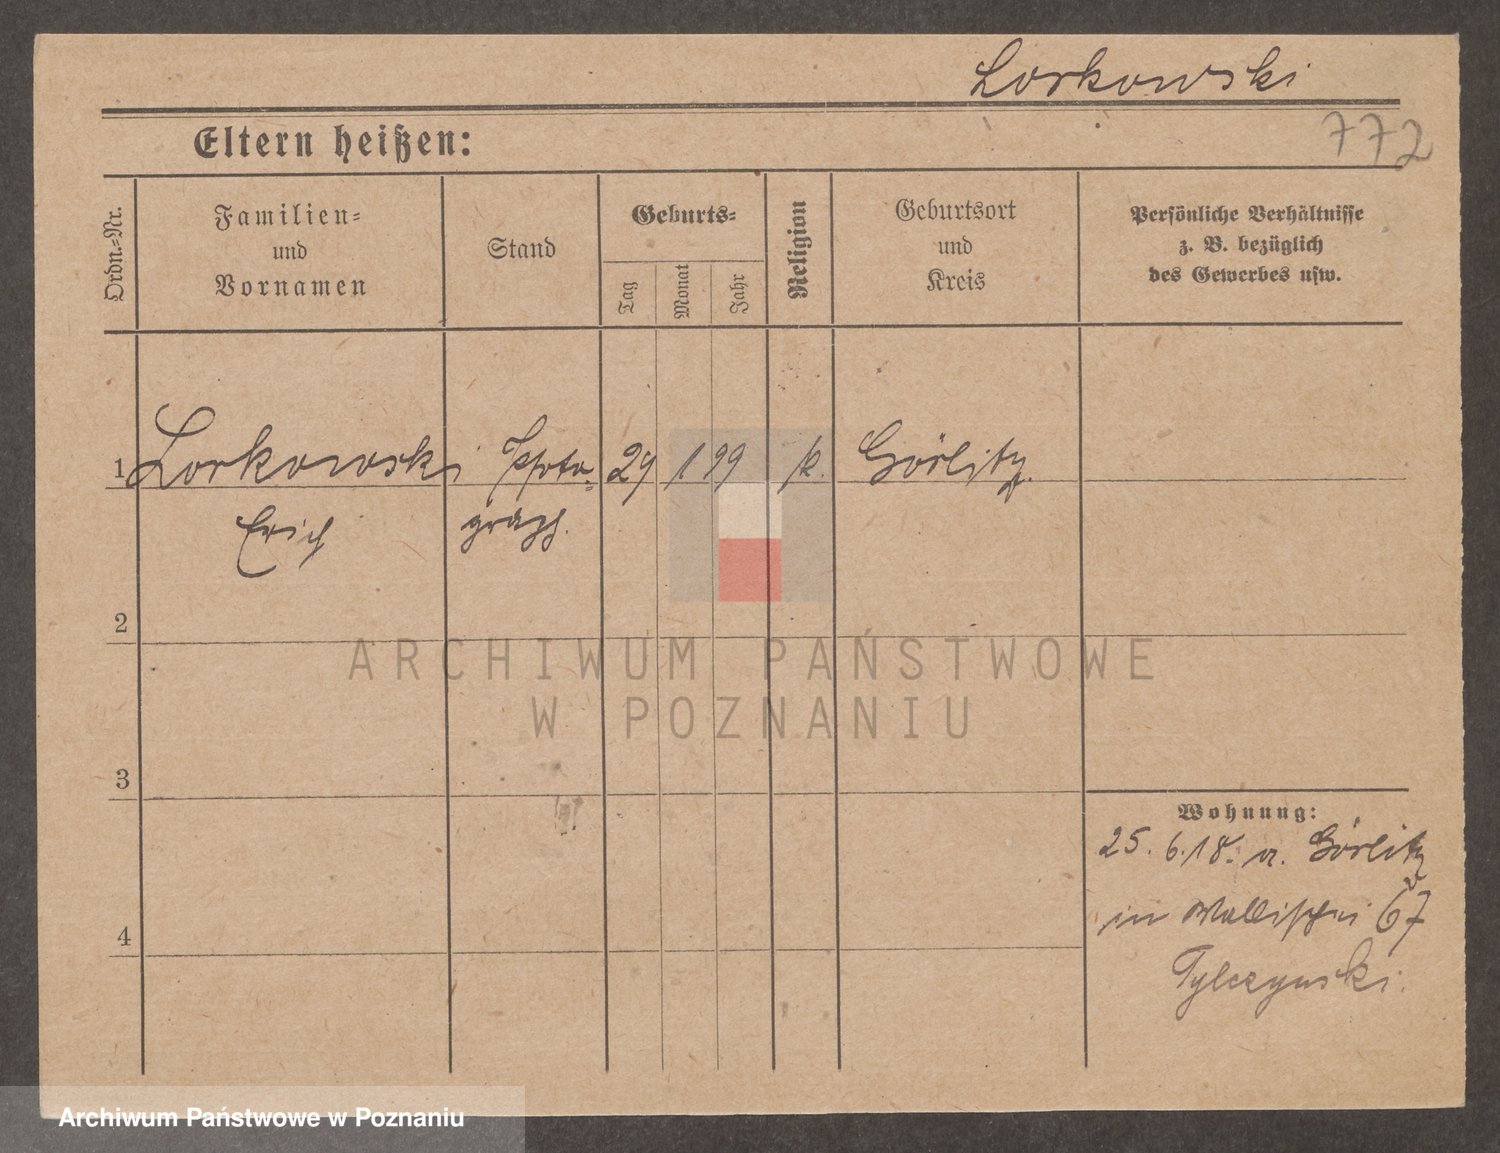 Lorkowski
Eltern heißen:
772
Ordn.=Nr.
Familien=
und
Vornamen
Stand
Geburts=
Tag
Monat
Jahr
Religion
Geburtsort
und
Kreis
Persönliche Verhältnisse
z. B. bezüglich
des Gewerbes usw.
1 Lorkowski Photo= 29 1 99 k. Görlitz.
Erich graph.
2
3
4
Wohnung:
25. 6. 18. v. Görlitz
in Wallischei 67
Tylczynski.
ARCHIWUM PAŃSTWOWE
W POZNANIU
Archiwum Państwowe w Poznaniu